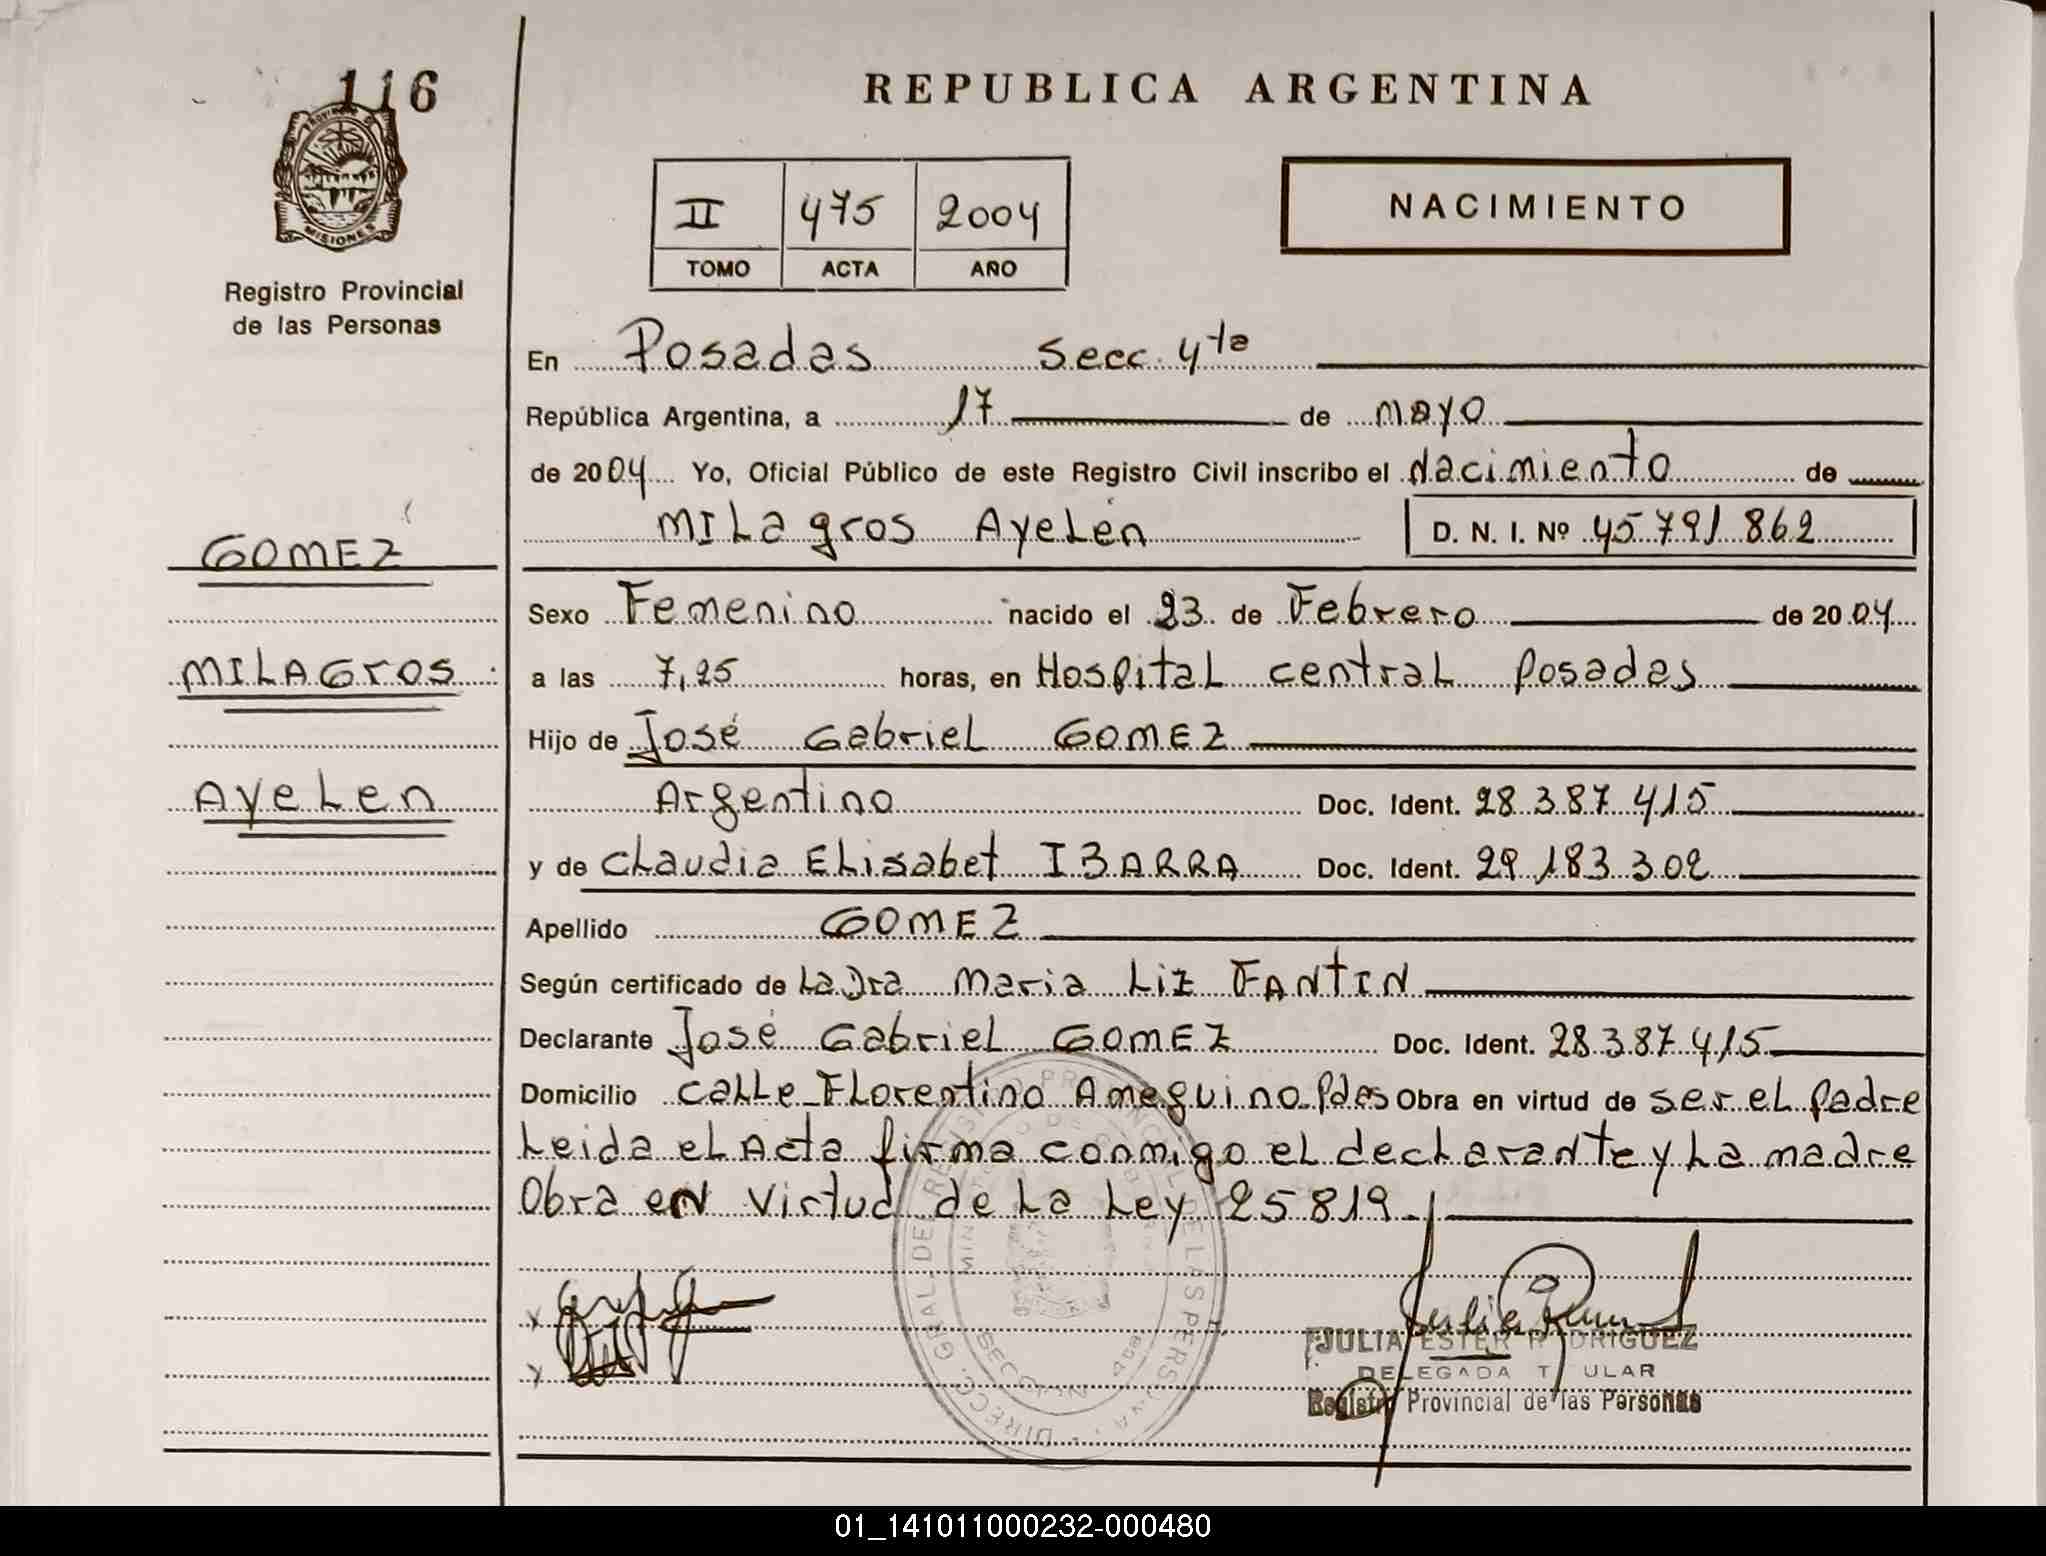 116
REPUBLICA ARGENTINA
PROVINCIA DE
MISIONES
Registro Provincial
de las Personas
II 475 2004
TOMO ACTA AÑO
NACIMIENTO
En Posadas Secc. 4ta
República Argentina, a 17 de mayo
de 2004 Yo, Oficial Público de este Registro Civil inscribo el Nacimiento de
MILagros AyeLén D. N. I. Nº 45 791 862
GOMEZ
MILAGros
AyeLen
Sexo Femenino nacido el 23 de Febrero de 2004
a las 7,25 horas, en HospitaL centraL Posadas
Hijo de José GabrieL GOMEZ
Argentino Doc. Ident. 28 387 415
y de CLaudia ELisabet IBARRA Doc. Ident. 29 183 302
Apellido GOMEZ
Según certificado de La Dra Maria Liz FANtIN
Declarante José GabrieL GOMEZ Doc. Ident. 28 387 415
Domicilio caLLe FLorentino Ameguino Pdas Obra en virtud de ser eL padre
Leida eL Acta firma conmigo eL decLarante y La madre
Obra en virtud de La Ley 25819.
DIRECC. GRAL. DEL REGISTRO PROVINCIAL DE LAS PERSONAS
JULIA ESTER RODRIGUEZ
DELEGADA TITULAR
Registro Provincial de las Personas
01_141011000232-000480